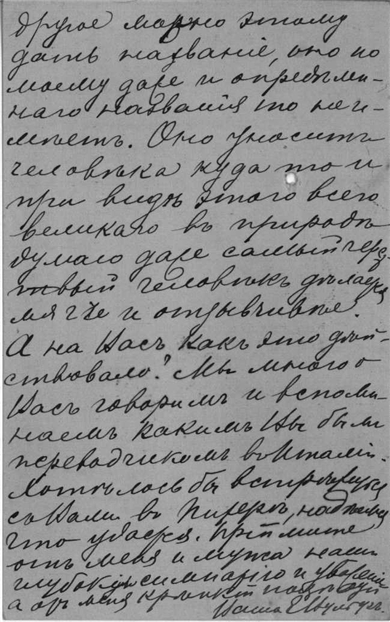 другое можно этому
дать названіе, оно по
моему даже и опредѣлен-
наго названія то не и-
мѣетъ. Оно уноситъ
человѣка куда то и
при видѣ этого всего
великаго въ природѣ
думаю даже самый черс-
твый человѣкъ дѣлается
мягче и отзывчивѣе.
А на Васъ какъ это дѣй-
ствовало? Мы много о
Васъ говоримъ и вспоми-
наемъ какимъ Вы были
переводчикомъ въ Италіи.
Хотѣлось бы встрѣтиться
съ Вами въ Питерѣ, надѣюсь,
что удастся. Примите
отъ меня и мужа наши
глубокія симпатію и уваженіе
а отъ меня крѣпкій
Ваша Е.